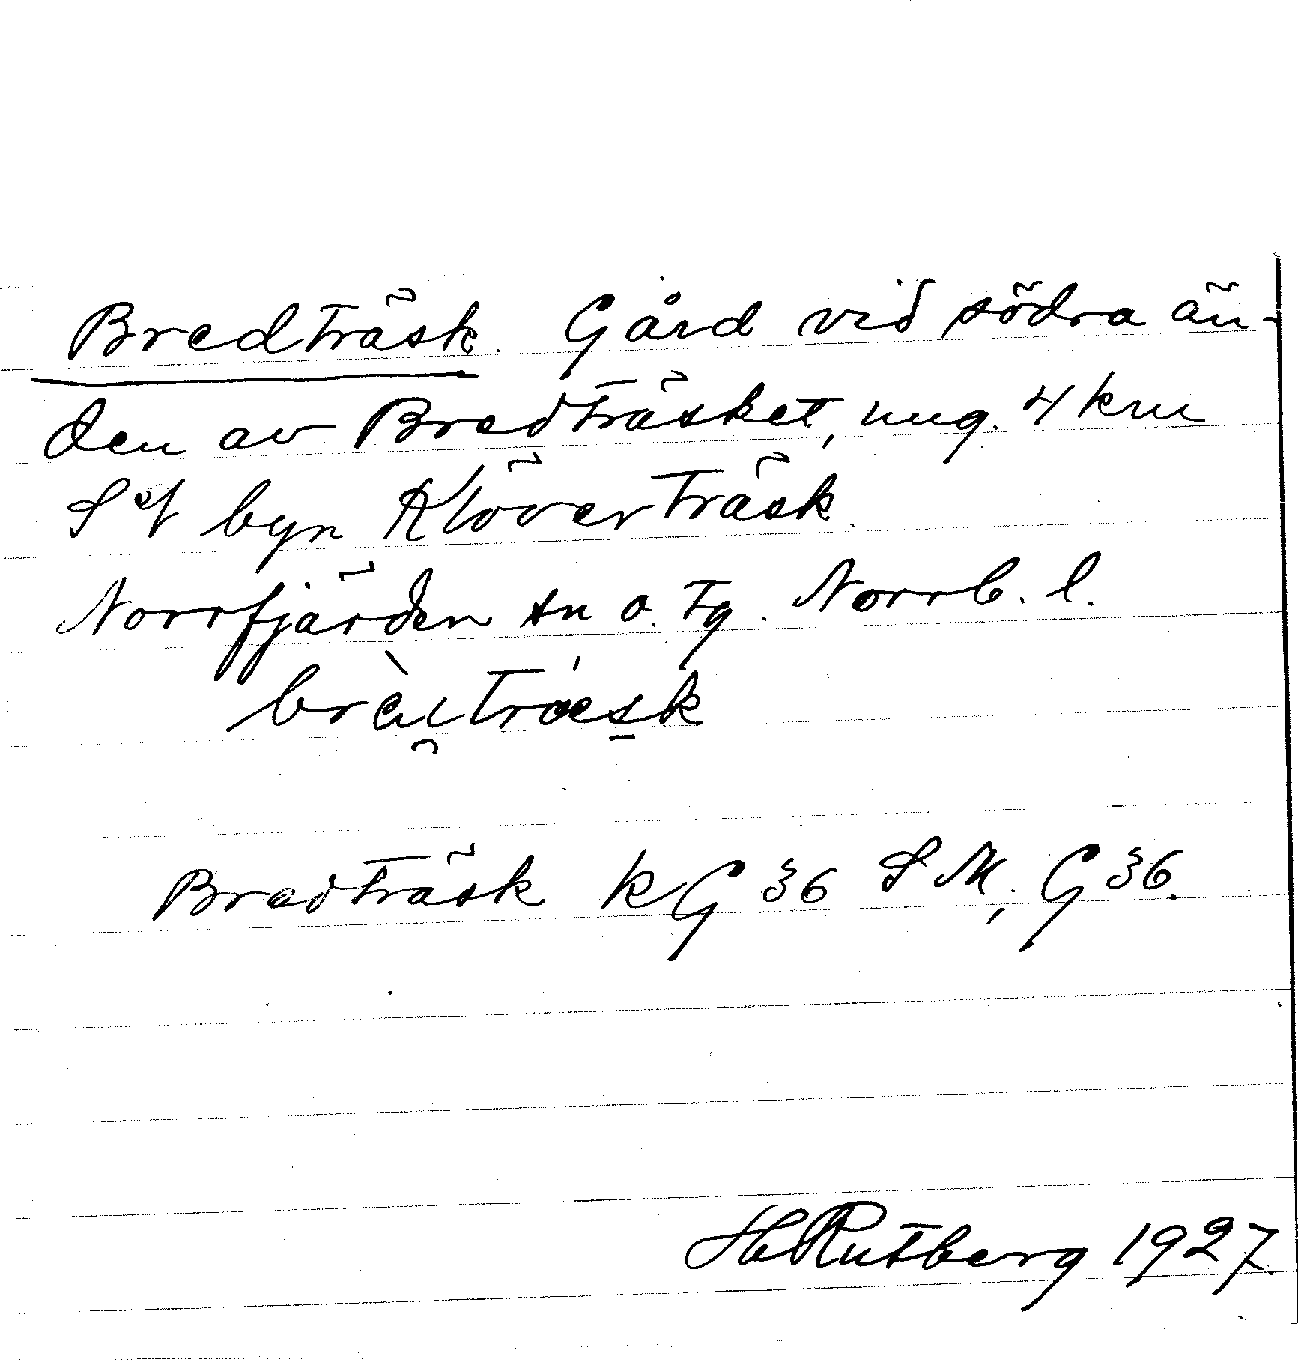 Bredträsk. Gård vid södra än-
den av Bredträsket, ung. 4 km
S of byn Klöverträsk.
Norrfjärden sn o. tg. Norrb. l.
Bredträsk kG 36 SM, G 36.
H Rutberg 1927.